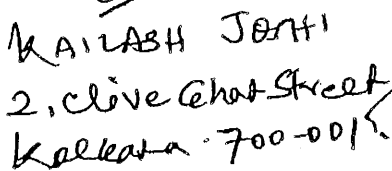 KAILASH JOTHI
2, Clive Ghat Street
Kolkata-700-001